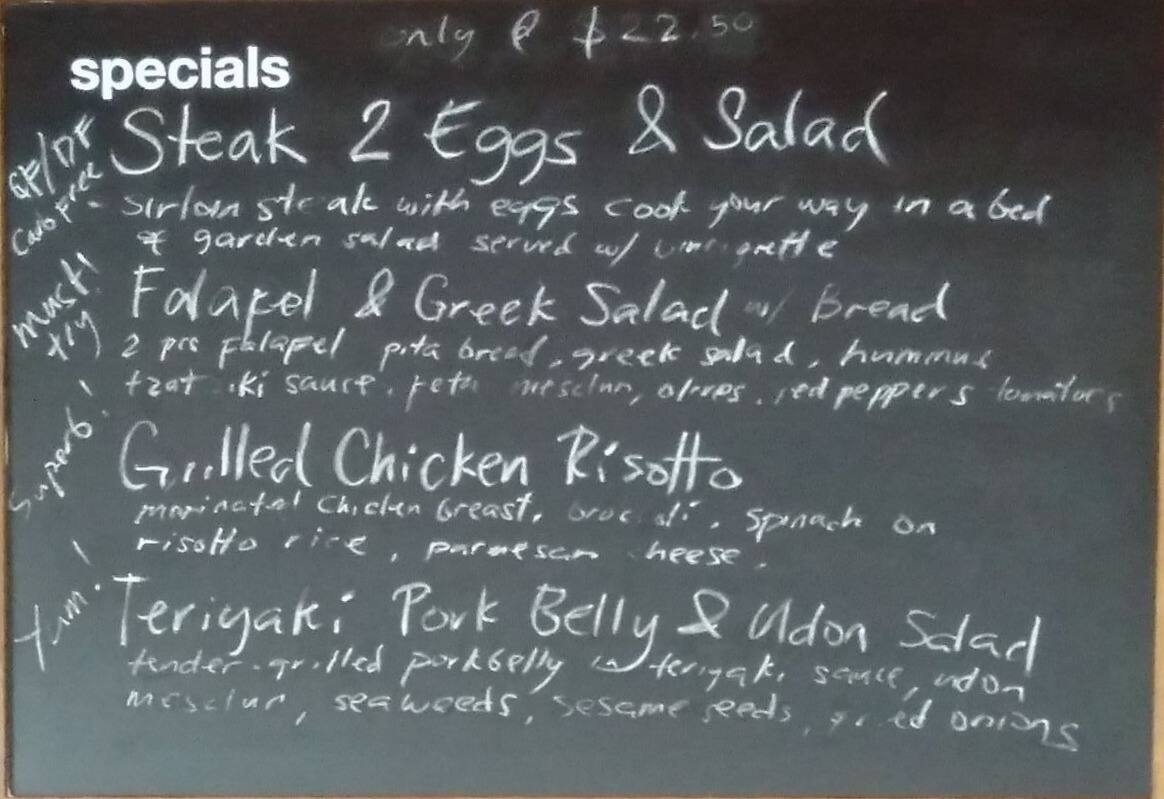 only @ $22.50
specials
GF/DF
Carb Free
Steak 2 Eggs & Salad
- sirloin steak with eggs cook your way in a bed
of garden salad served w/ vinaigrette
Must! try
Falafel & Greek Salad w/ Bread
2 pcs falafel pita bread, greek salad, hummus
tzatziki sauce, feta mesclun, olives, red peppers tomatoes
Superb!
Grilled Chicken Risotto
marinated chicken breast, broccoli, spinach on
risotto rice, parmesan cheese.
Yum!
Teriyaki Pork Belly & Udon Salad
tender grilled porkbelly in teriyaki sauce, udon
mesclun, seaweeds, sesame seeds, onions